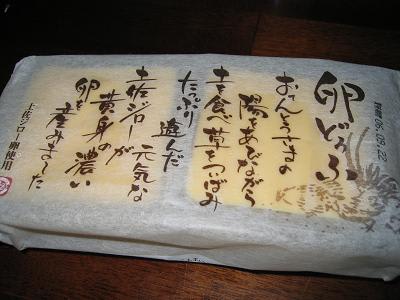 卵どうふ
期限06.09.22
おてんとうさまの
陽をあびながら
土を食べ 草をついばみ
たっぷり
遊んだ
土佐ジロー 元気な
が
黄身の濃い
卵を
産みました
土佐ジロー卵使用